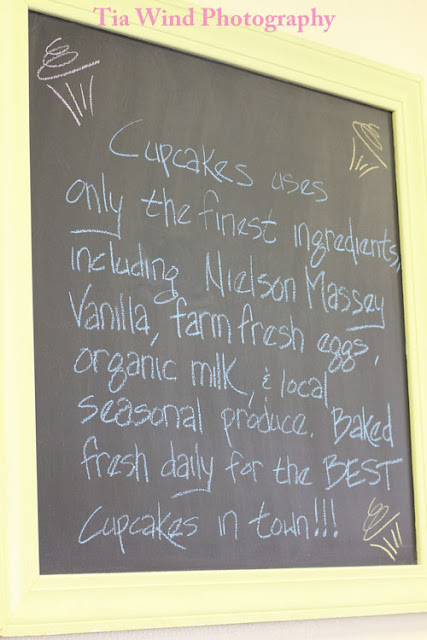 Tia Wind Photography
Cupcakes uses
only the finest ingredients,
including Nielson Massey
Vanilla, farm fresh eggs,
organic milk, & local
seasonal produce. Baked
fresh daily for the BEST
Cupcakes in town!!!